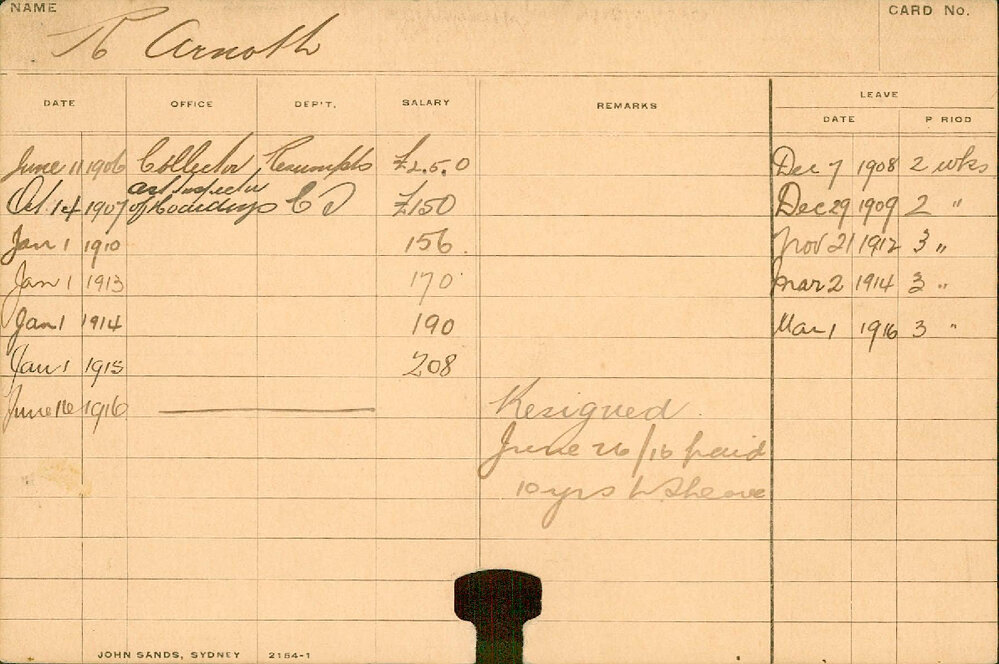 NAME
CARD No.
R Arnoth
DATE OFFICE DEP'T. SALARY REMARKS LEAVE
DATE P RIOD
June 11 1906 Collector Resumpts £2.5.0 Dec 7 1908 2 wks
Oct. 14 1907 act Inspector of Hoardings C S £150 Dec 29 1909 2 "
Jan 1 1910 156. Nov 21 1912 3 "
Jan 1 1913 170 Mar 2 1914 3 "
Jan 1 1914 190 Mar 1 1916 3 "
Jan 1 1915 208
June 16 1916 Resigned
June 26/16 paid
10 yrs
JOHN SANDS, SYDNEY 2164-1